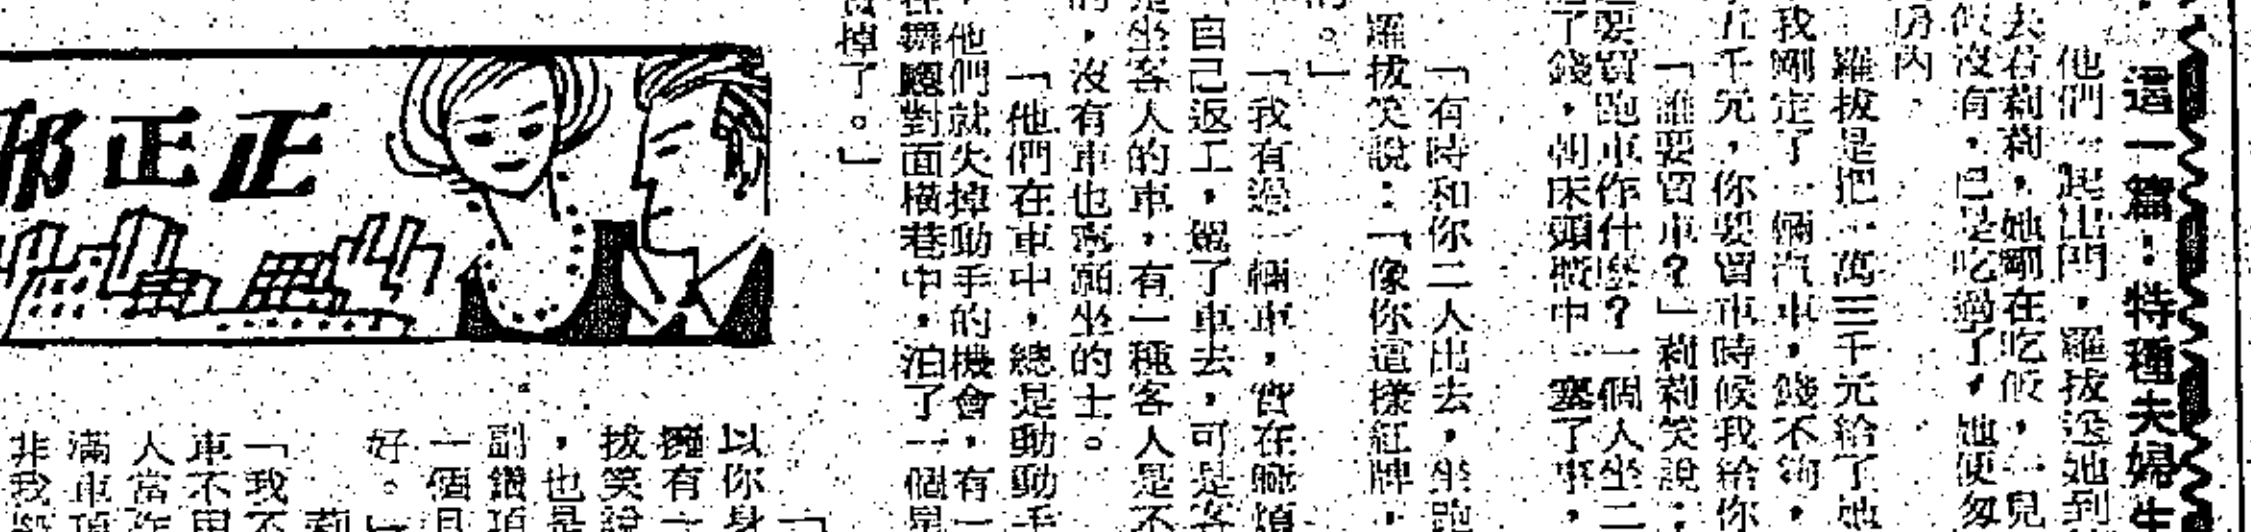 這一篇：特種夫婦生
他們一起出門，羅拔送她到
去看莉莉，她剛在吃飯，一見
飯沒有，已是吃過了，她便匆
房內，
羅拔是把一萬三千元給了她
我剛定了一輛汽車，錢不夠，
五千元，你要買車時候我給你
「誰要買車？」莉莉笑說：
要買跑車作什麼？一個人坐二
了錢，朝床頭櫃中一塞了事，
「有時和你二人出去，坐跑
羅拔笑說：「像你這樣紅牌，
。」
「我有過一輛車，實在麻煩
自己返工，駕了車去，可是客
坐客人的車，有一種客人是不
，沒有車也寧願坐的士。
「他們在車中，總是動動手
，他們就失掉動手的機會，有一
舞廳對面橫巷中，泊了一個星
掉了。」
邪正正
以你身
擁有一
拔笑說
，也是
副鑽項
一個月
好。」
莉
「我不
車不用
人當作
滿車頂
非我